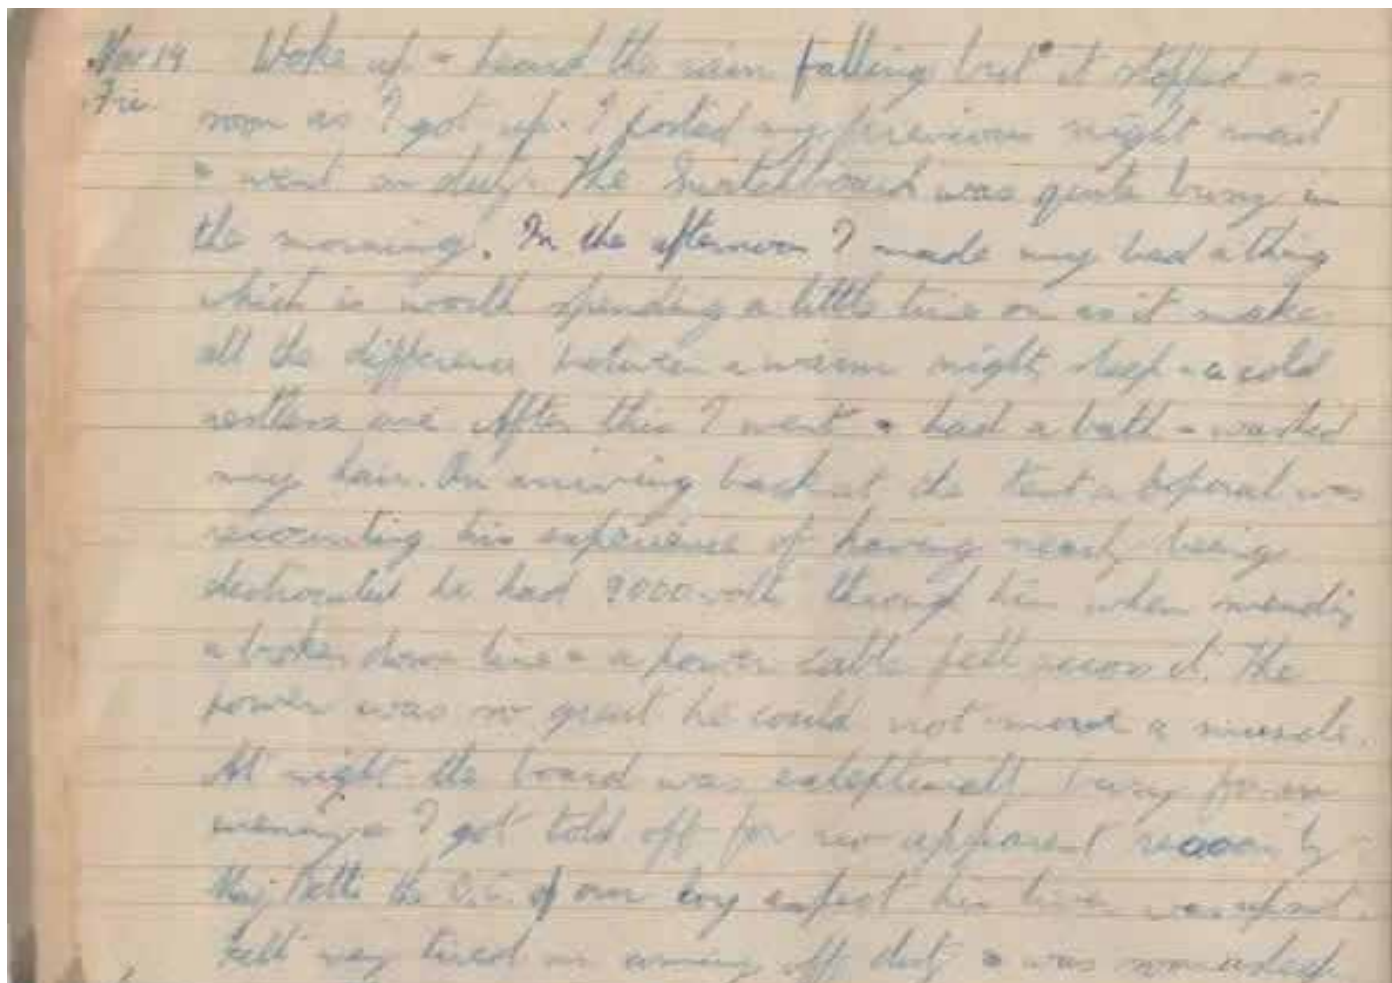 Nov 19 Woke up & heard the rain falling but it stopped as
Fri. soon as I got up. I posted my previous night mail
& went on duty. The Switchboard was quite busy in
the morning. In the afternoon I made my bed a thing
which is worth spending a little time on as it make
all the difference between a warm night sleep & a cold
restless one. After this I went & had a bath & washed
my hair. On arriving back at the tent a Corporal was
recounting his experience of having nearly being
electrocuted he had 9000 volts through him when mending
a broken down line & a power cable fell across it. The
power was so great he could not move a muscle.
At night the board was busy for an
evening & I got told off for no apparent reason by
Maj the O.C. of our coy expect his was upset.
Felt very tired on coming off duty & was soon asleep